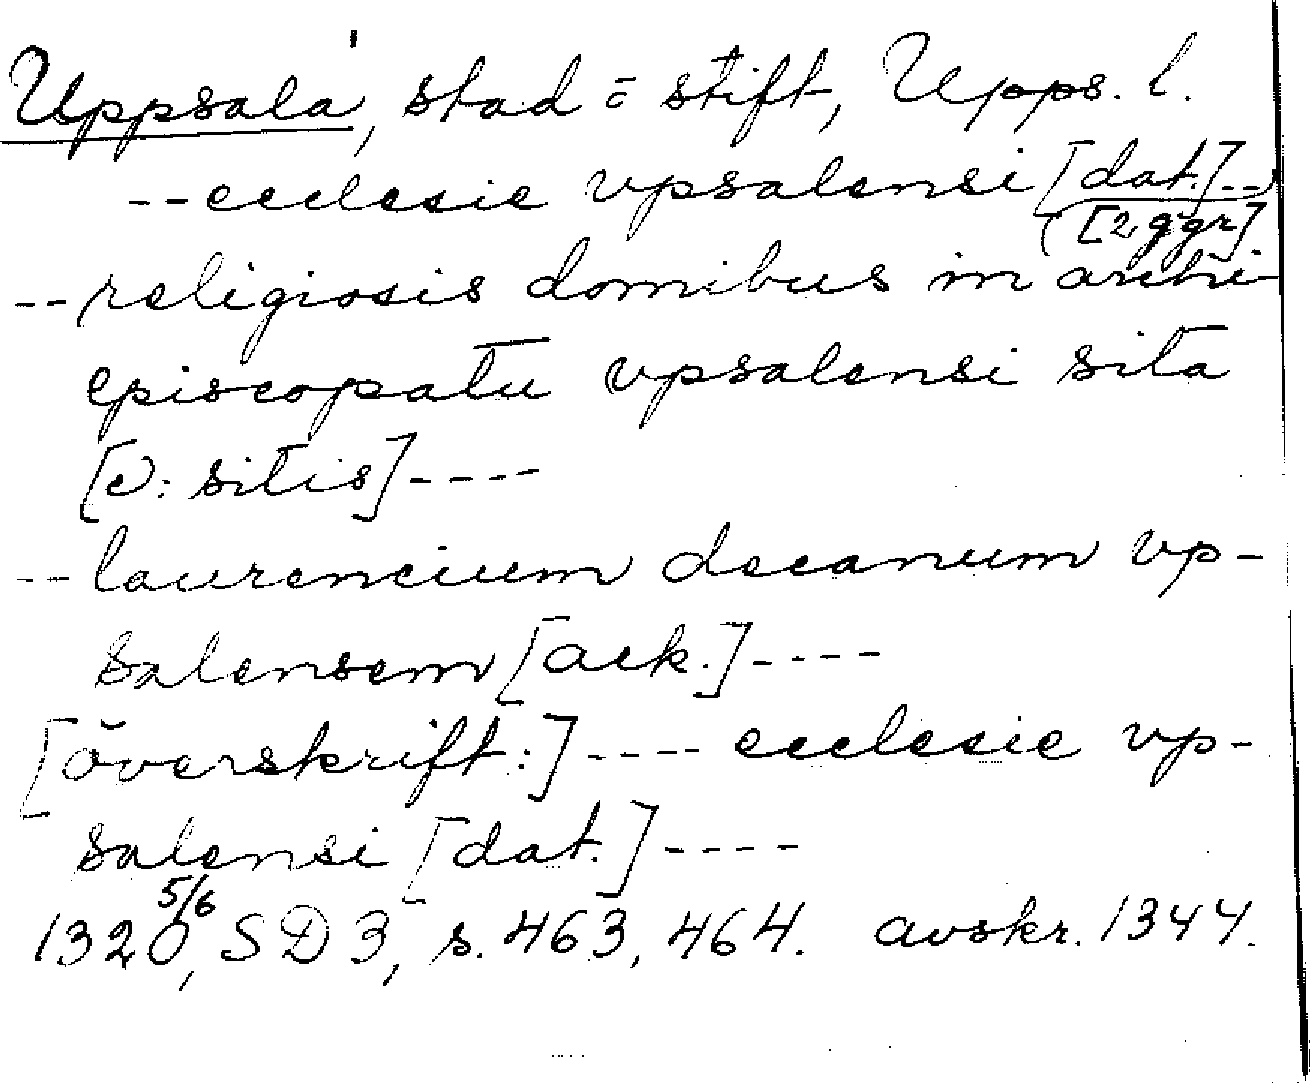 Uppsala, stad o stift, Upps. l.
--ecclesie vpsalensi [dat.]--
[2 ggr]
--religiosis domibus in archi-
episcopatu vpsalensi sita
[ɔ: sitis]----
--laurencium decanum vp-
salensem [ack.]----
[överskrift:]---- ecclesie vp-
salensi [dat.]----
1320 5/6, SD 3, s. 463, 464. avskr. 1344.